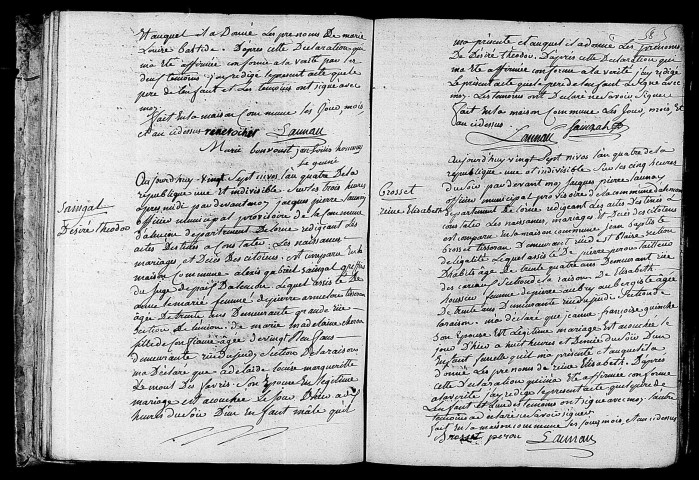 Et auquel il a Donné Les prenoms De marie
Louise Bastide. D'apres cette Declaration que
ma Eté affirmée conforme a la verité par les
deux temoins j'ay redigé le present acte que le
pere de l'enfant et Les temoins ont signé avec
moy
fait en la maison Commune Les Jour, mois,
et an cidessus Launay
Marie
Le
Aujourdhuy vingt sept nivos L'an quatre De la
republique une et indivisible Sur les trois heures
apres midi par devant moy jaques pierre Launay
officier municipal provisoire de la Commune
D'alencon departement De Lorne redigeant les
actes Des tinés a Constater Les naissances
mariages et Deces Des citoiens, a comparu En la
maison Commune alexis gabriel saingal greffier
du juge de paix D'alencon Lequel assisté De
anne Le marié femme
agée De trente ans Demeurante grande rüe
Section De L'union, de marie madelaine
fille agée De vingt neuf ans
Demeurante rüe section De la raison
ma Declaré que adelaide Louise marguerite
Le mout Son Epouse En legitime
mariage est accouchée Le jour D'hier a
heures du soir D'un enfant mâle qu'il
Saingal
Désiré théodor
ma presenté et auquel il a donné Les prenoms
De Désiré Théodor. D'après cette Declaration que
ma Eté affirmée conforme a la verité j'ay redigé
le present acte que le pere de l'enfant a signé avec
moy. Les temoins ont Declaré ne savoir signer
fait en la maison commune Les Jour, mois, Et
an cidessus Launay Saingal
Aujourdhuy vingt sept nivos L'an quatre de la
republique une et indivisible Sur les cinq heures
du soir par devant moy Jacques pierre Launay
officier municipal provisoire de la commune d'alencon
Departement De Lorne redigeant Les actes Des tinés a
constater Les naissances, mariages et Deces Des citoiens
est comparu En la maison commune jean baptiste
Brosset tisserand Demeurant rüe De St Blaise section
De légalité Lequel assisté De pierre perou tailleur
D'habits agé De trente quatre ans Demeurant rüe
des Section de la raison. De Elisabeth
femme de pierre aubry aubergiste agée
De trente ans Demeurante rüe Section De
la raison. ma declaré que jeanne françoise
Son Epouse En Legitime mariage est accouchée le
jour D'hier a huit heures et Demie Du soir D'un
Enfant femelle qu'il ma presenté et auquel il a
Donné Les prenoms de reine Elisabeth. D'apres
cette Declaration qui ma Eté affirmée conforme
a la verité j'ay redigé le present acte que le pere de
L'enfant et L'un des temoins ont signé avec moy, L'autre
temoin a declaré ne savoir signer
fait en la maison commune Les jour, mois, et an cidessus
Brosset perou Launay
Brosset
reine Elisabeth